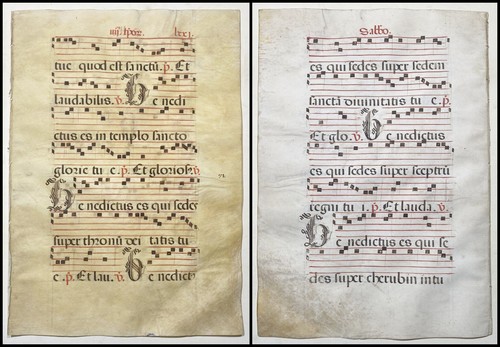 iiij. tp̄oꝝ. lxxi.
tuę quod est sanctū. p̄. Et
laudabilis. v̄. Be nedi
ctus es in templo sancto
glorię tu ę. p̄. Et gloriosꝰ. v̄
Be nedictus es qui sedes
super thronū dei tatis tu
ę. p̄. Et lau. v̄. Be nedict
Sabbo.
es qui sedes super sedem
sanctā divinitatis tu ę. p̄.
Et glo. v̄. Be nedictus
es qui sedes super sceptrū
regni tu i. p̄. Et lauda. v̄.
Be nedictus es qui se
des super cherubin intu